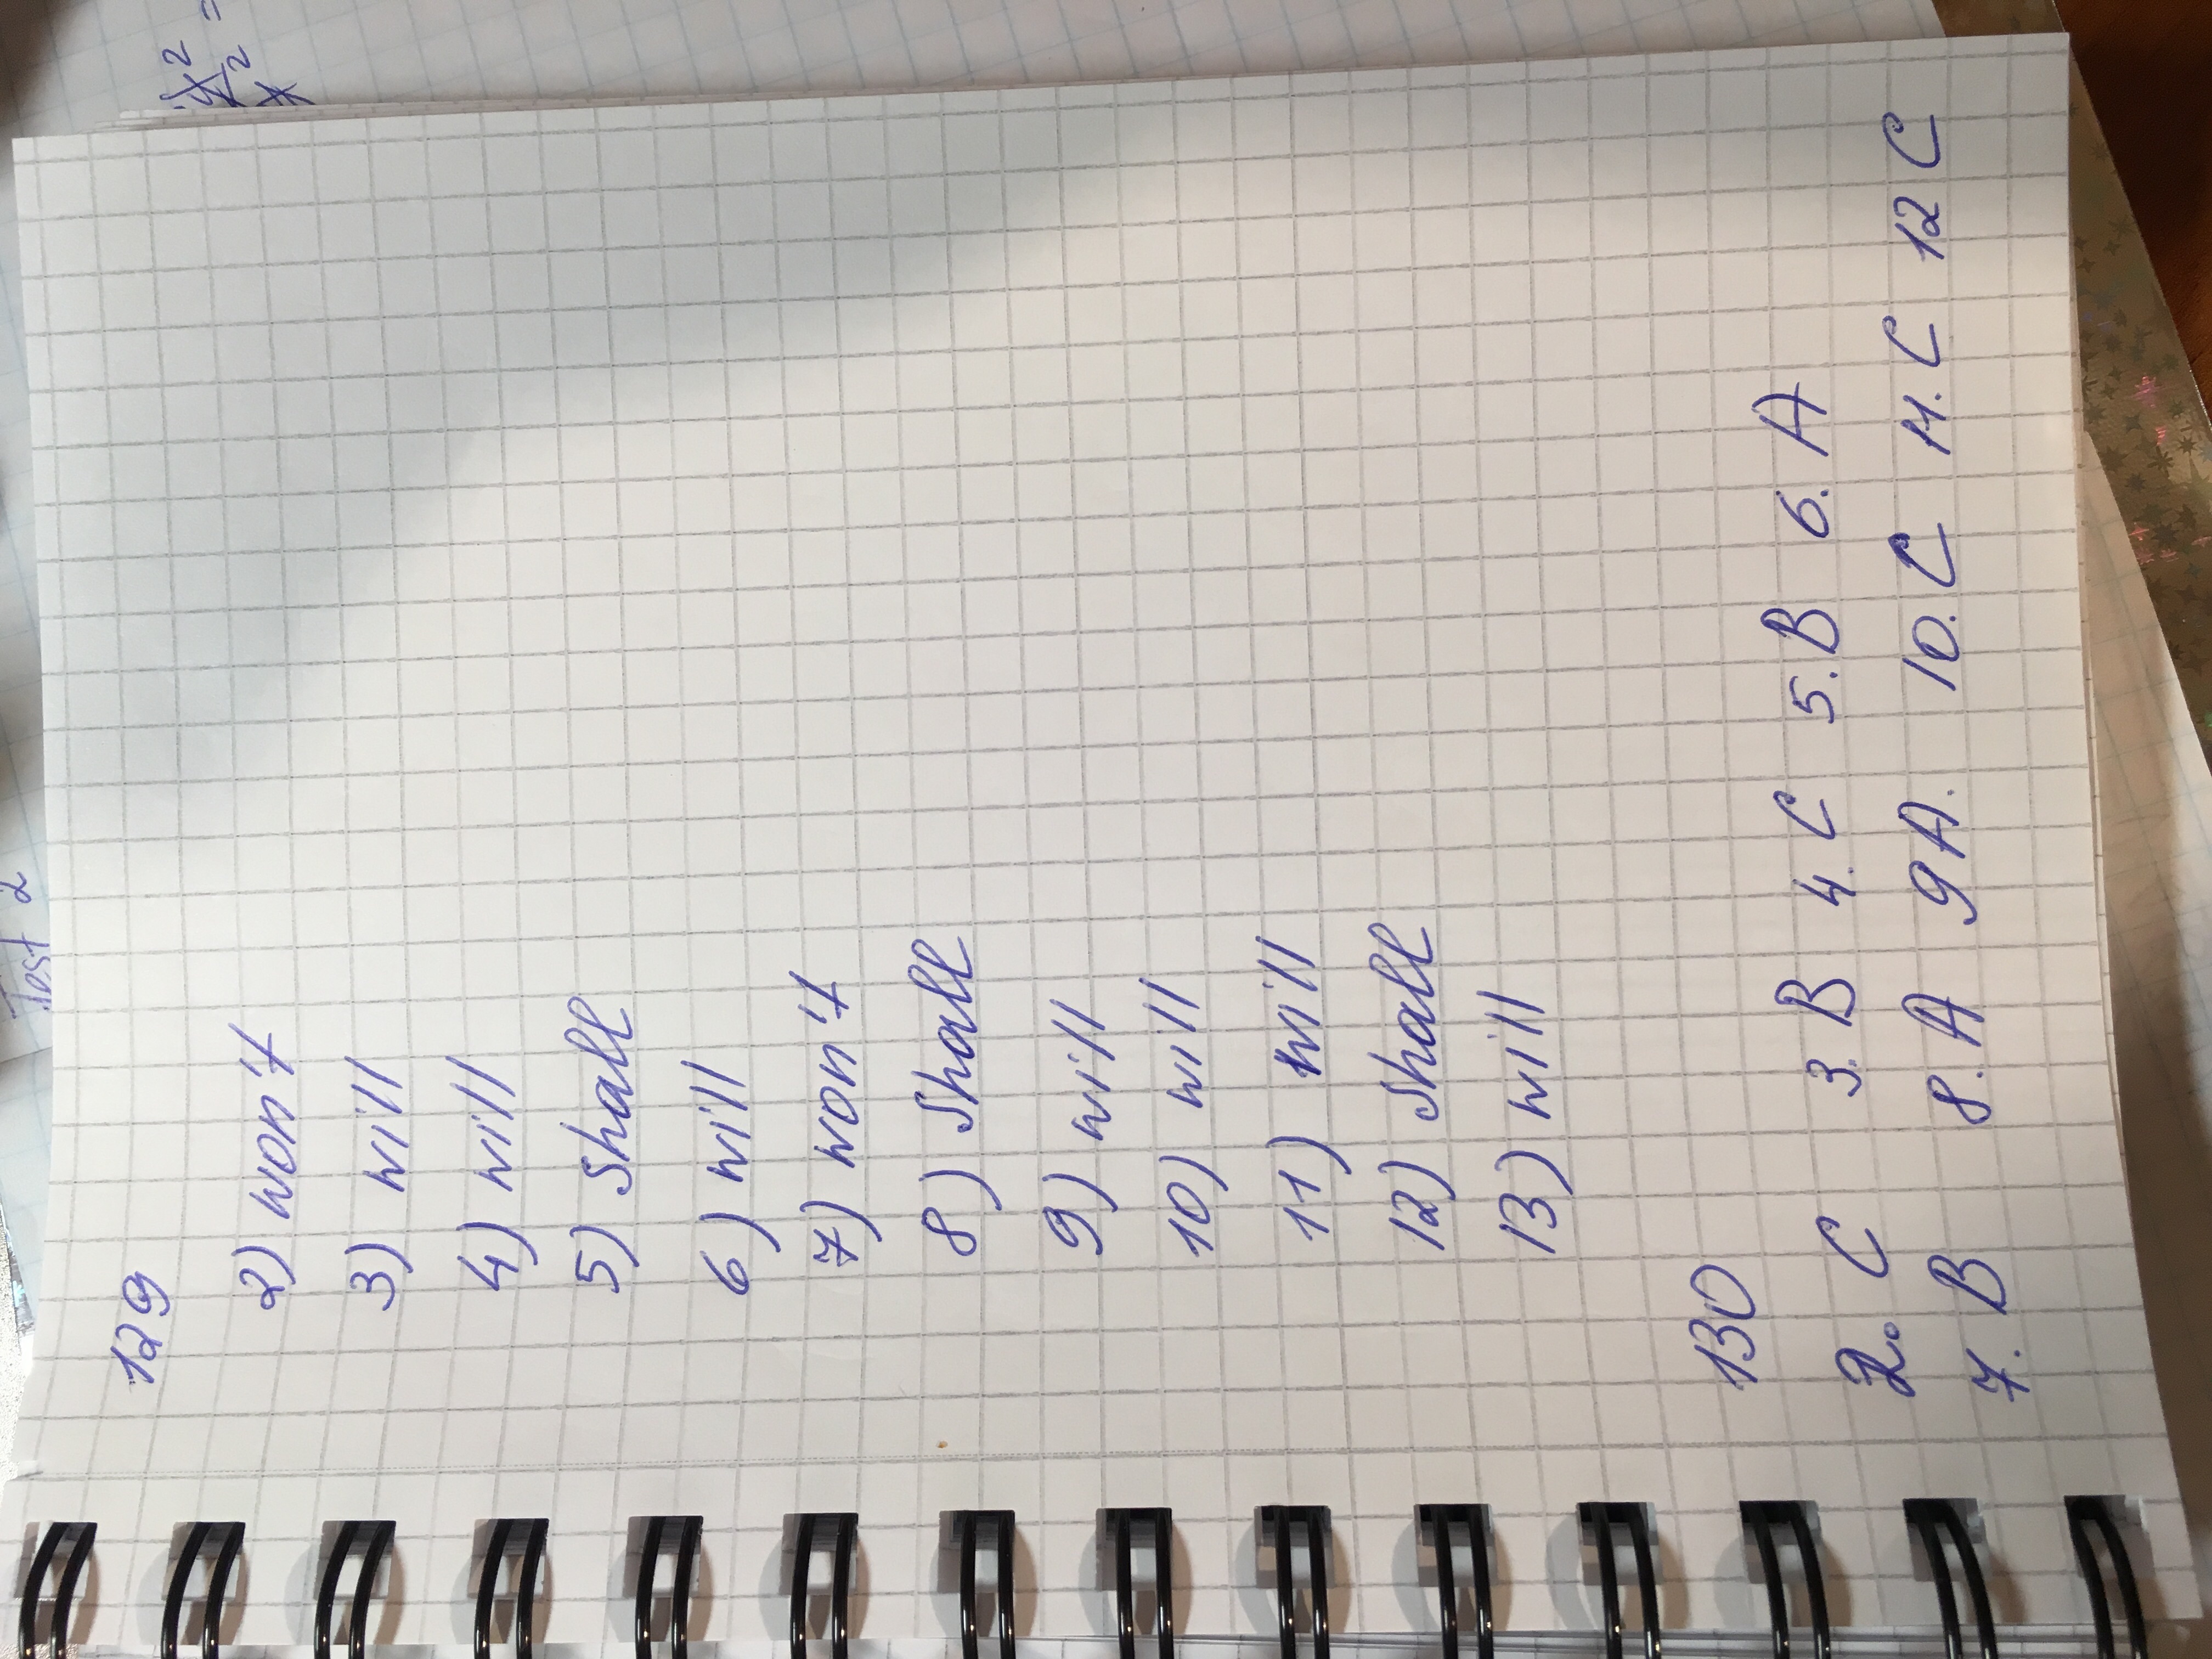 129
2) won't
3) will
4) will
5) Shall
6) will
7) won't
8) Shall
9) will
10) will
11) will
12) Shall
13) will
130
2. C 3. B 4. C 5. B 6. A
7. B 8. A 9 A. 10. C 11. C 12 C
Test 2